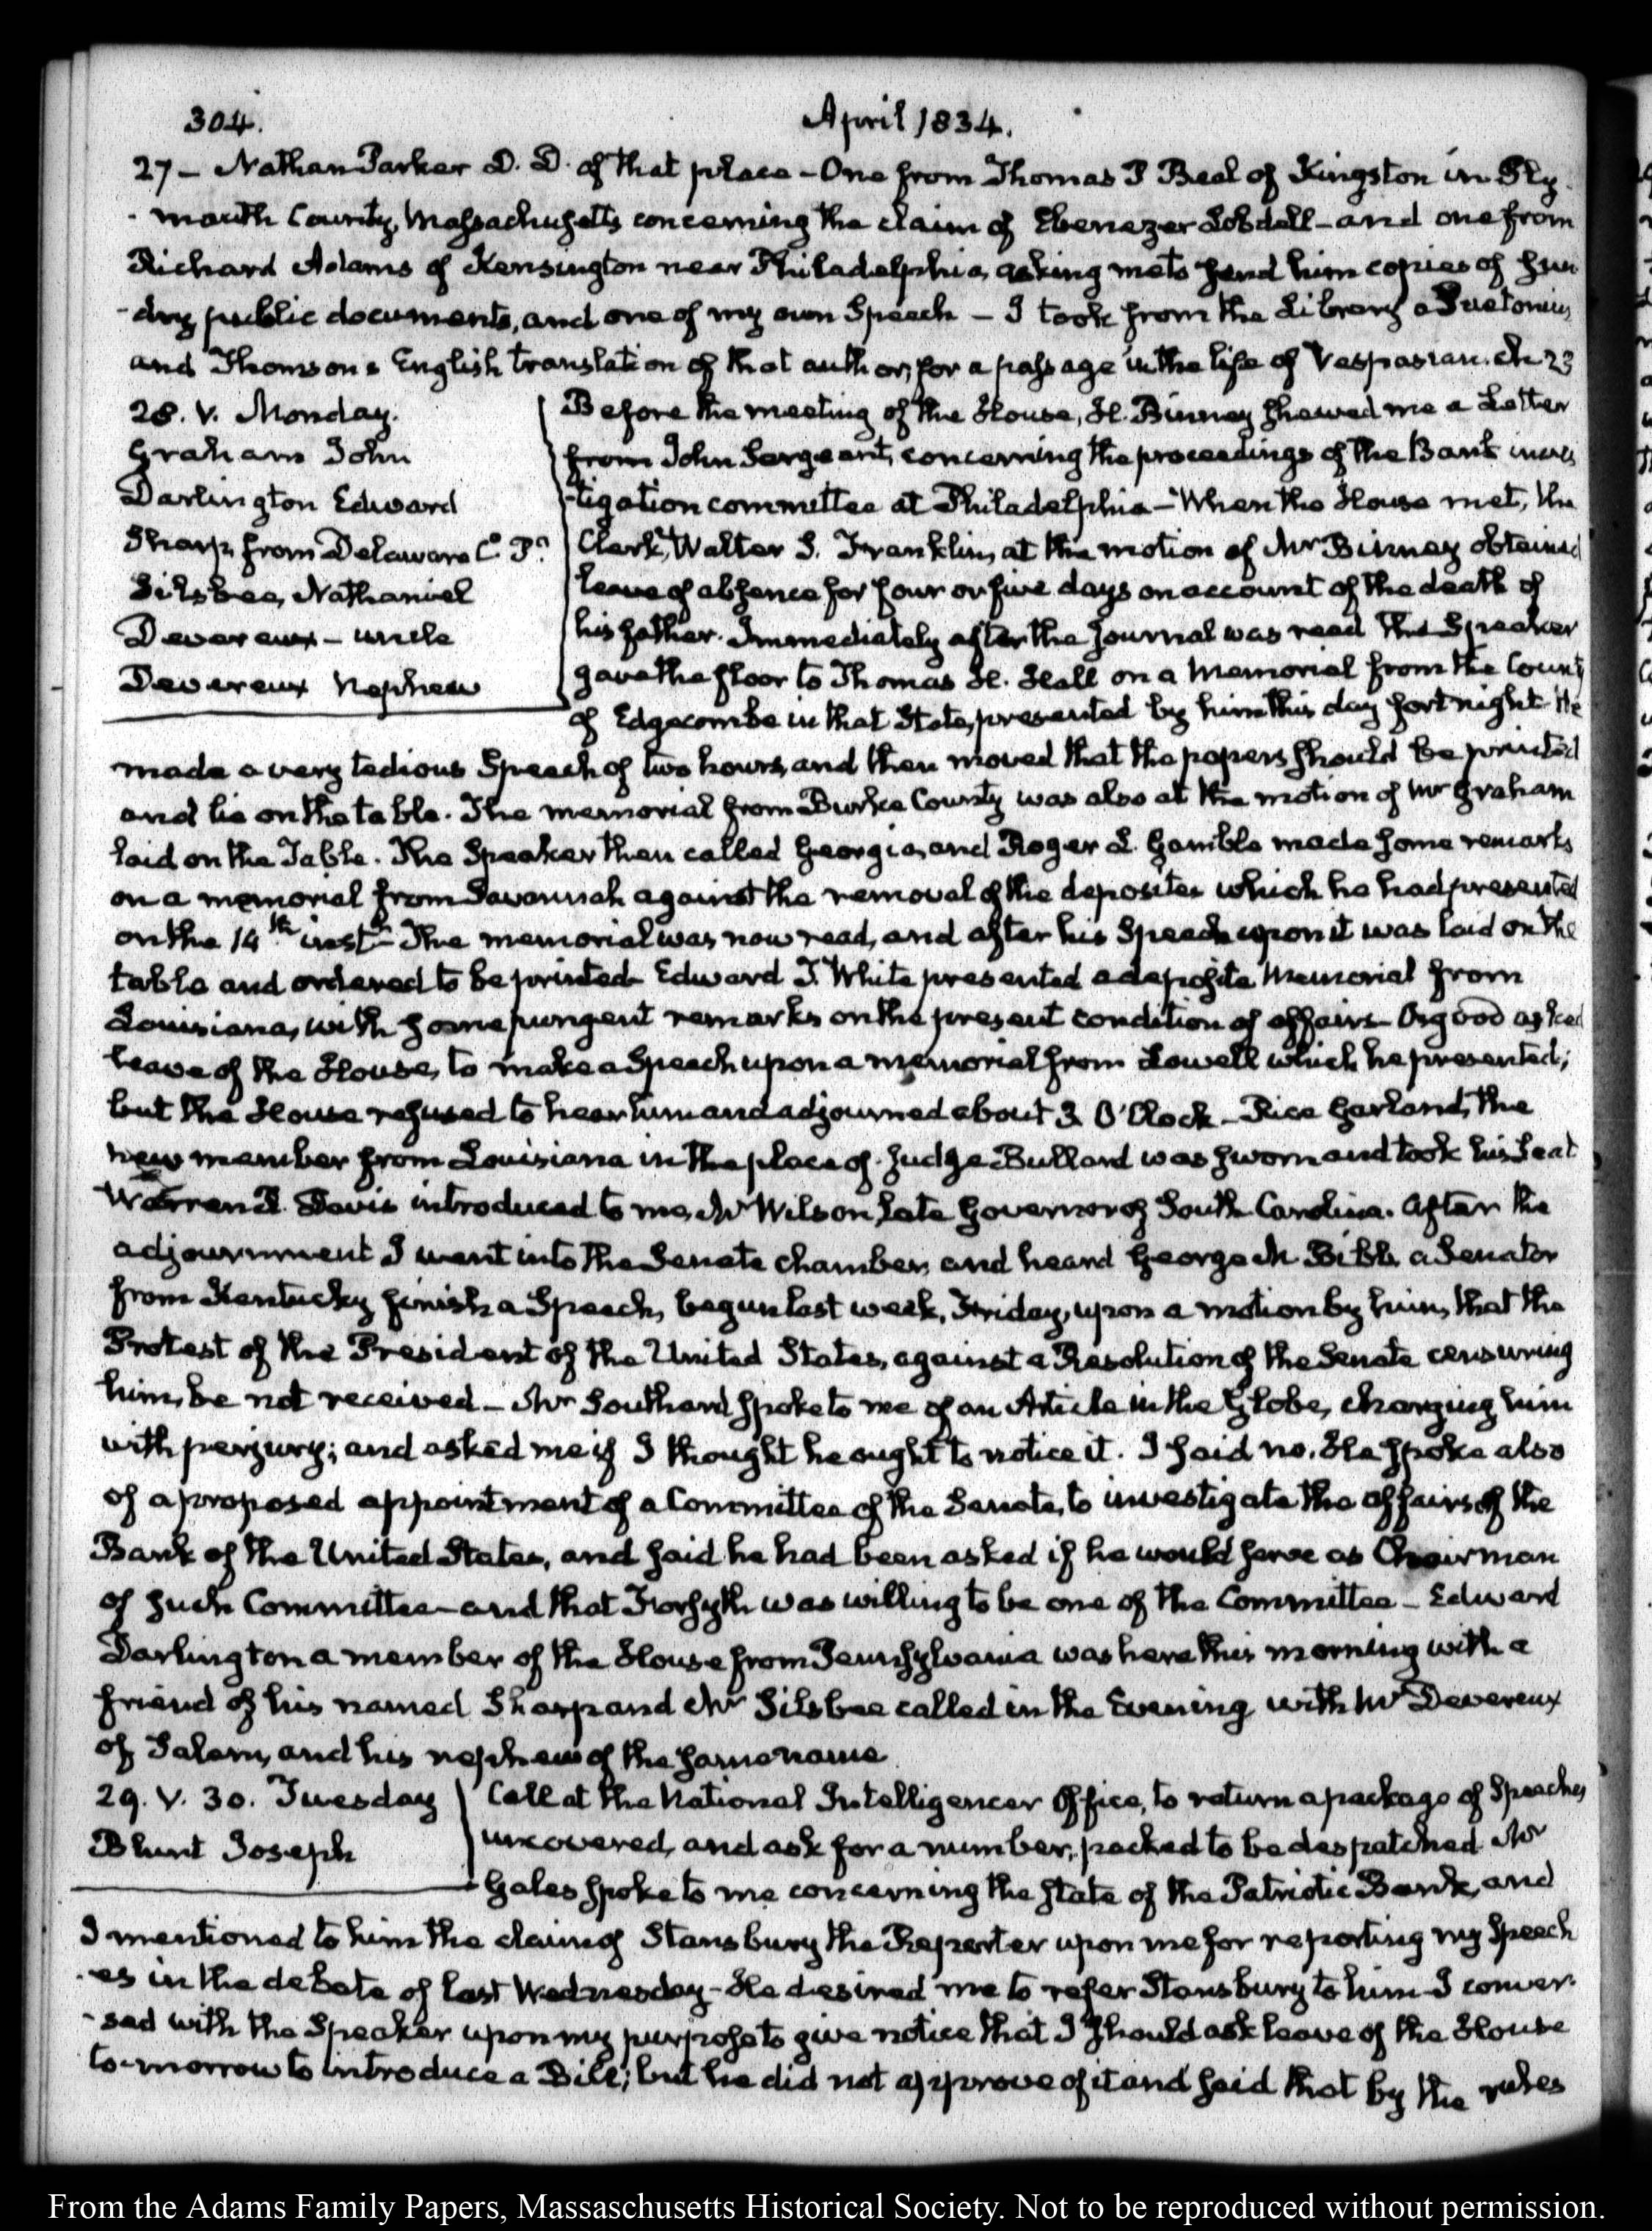 304.
April 1834.
27 – Nathan Parker D. D. of that place – One from Thomas P Beal of Kingston in Ply
- mouth County, Massachusetts concerning the claim of Ebenezer Lobdell – and one from
Richard Adams of Kensington near Philadelphia, asking me to send him copies of sun
- dry public documents, and one of my own Speech – I took from the Library a Suetonius
and Thomson's English translation of that author, for a passage in the life of Vespasian. ch 23
28. V. Monday.
Graham John
Darlington Edward
Sharp from Delaware Co. Pa.
Silsbee, Nathaniel
Devereux – uncle
Devereux Nephew
Before the meeting of the House, H. Binney shewed me a Letter
from John Sergeant, concerning the proceedings of the Bank inves
-tigation committee at Philadelphia – When the House met, the
Clerk, Walter S. Franklin, at the motion of Mr Binney obtained
leave of absence for four or five days on account of the death of
his father. Immediately after the Journal was read the Speaker
gave the floor to Thomas H. Hall on a Memorial from the County
of Edgecombe in that State, presented by him this day fortnight. He
made a very tedious Speech of two hours, and then moved that the papers should be printed
and lie on the table. The memorial from Burke County was also at the motion of Mr Graham
laid on the Table. The Speaker then called Georgia, and Roger L. Gamble made some remarks
on a memorial from Savannah against the removal of the deposites which he had presented
on the 14th inst – The memorial was now read, and after his Speech upon it was laid on the
table and ordered to be printed – Edward D. White presented a deposite Memorial from
Louisiana, with some pungent remarks on the present condition of affairs – Osgood asked
leave of the House, to make a Speech upon a memorial from Lowell which he presented;
but the House refused to hear him and adjourned about 3 O'Clock – Rice Garland, the
new member from Louisiana in the place of Judge Bullard was sworn and took his seat
Warren R. Davis introduced to me, Mr Wilson late Governor of South Carolina. After the
adjournment I went into the Senate chamber, and heard George M Bibb, a Senator
from Kentucky finish a Speech, begun last week, Friday, upon a motion by him, that the
Protest of the President of the United States, against a Resolution of the Senate censuring
him, be not received – Mr Southard spoke to me of an Article in the Globe, charging him
with perjury; and asked me if I thought he ought to notice it. I said no. He spoke also
of a proposed appointment of a Committee of the Senate, to investigate the affairs of the
Bank of the United States, and said he had been asked if he would serve as Chairman
of such Committee – and that Forsyth was willing to be one of the Committee – Edward
Darlington a member of the House from Pennsylvania was here this morning with a
friend of his named Sharp and Mr Silsbee called in the Evening with Mr Devereux
of Salem, and his nephew of the same name
29. V. 30. Tuesday
Blunt Joseph
Call at the National Intelligencer Office, to return a package of Speeches
uncovered, and ask for a number, packed to be despatched. Mr
Gales spoke to me concerning the state of the Patriotic Bank, and
I mentioned to him the claim of Stansbury the Reporter upon me for reporting my Speech
- es in the debate of last Wednesday – He desired me to refer Stansbury to him – I conver
- sed with the Speaker upon my purpose to give notice that I should ask leave of the House
to-morrow to introduce a Bill; but he did not approve of it and said that by the rules
From the Adams Family Papers, Massaschusetts Historical Society. Not to be reproduced without permission.